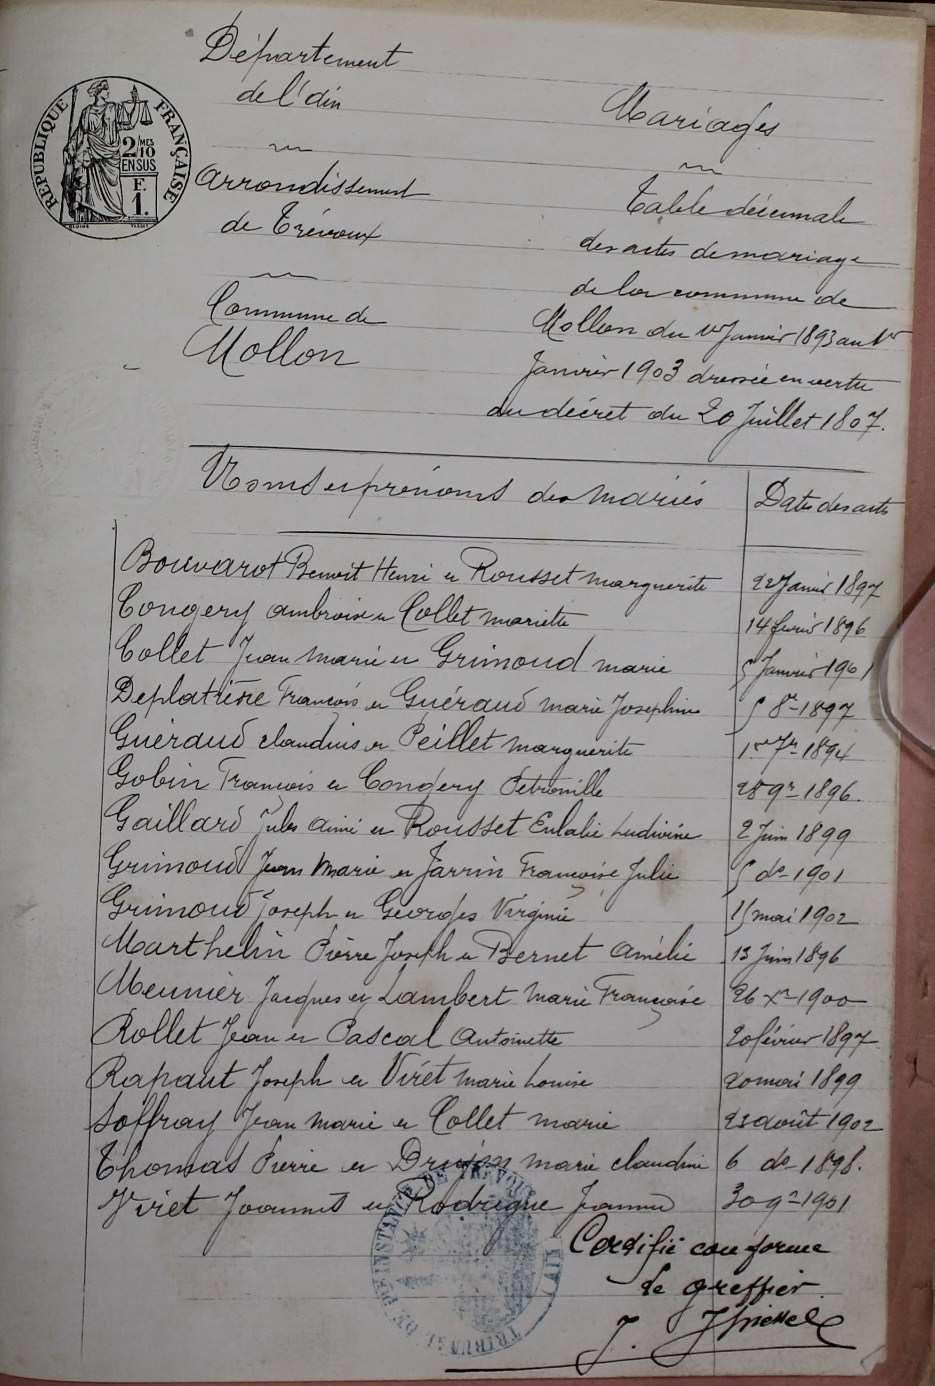 Département
de l'Ain
Arrondissement
de Trévoux
Commune de
Mollon
RÉPUBLIQUE FRANÇAISE
2/10 MES
EN SUS
F.
1.
Mariages
Table décennale
des actes de mariage
de la commune de
Mollon du 1er Janvier 1893 au 1er
Janvier 1903 dressée en vertu
du décret du 20 Juillet 1807.
Noms et prénoms des mariés Dates des actes
Bouvarot Benoit Henri et Rousset marguerite 22 Janvier 1897
Congery ambroise et Collet mariette 14 fevrier 1896
Collet Jean marie et Grimoud marie 5 Janvier 1901
Deplatière François et Guéraud marie Josephine 5 8re 1897
Guéraud claudius et Peillet marguerite 1er 7re 1894
Gobin François et Congery Pétronille 28 9re 1896.
Gaillard Jules aimé et Rousset Eulalie Ludivine 2 Juin 1899
Grimoud Jean Marie et Jarrin Françoise Julie 5 do 1901
Grimoud Joseph et Georges Virginie 15 mai 1902
Marthelin Pierre Joseph et Bernet Amélie 13 Juin 1896
Meunier Jacques et Lambert Marie Françoise 26 Xre 1900
Rollet Jean et Pascal Antoinette 20 février 1897
Rapaut Joseph et Viret marie Louise 20 mai 1899
Soffray Jean marie et Collet marie 23 août 1902
Thomas Pierre et marie claudine 6 do 1898.
Viret Joannes et Rodrigue Jeanne 30 9re 1901
Certifié conforme
Le greffier.
J.
TRIBUNAL DE 1re INSTANCE DE TRÉVOUX